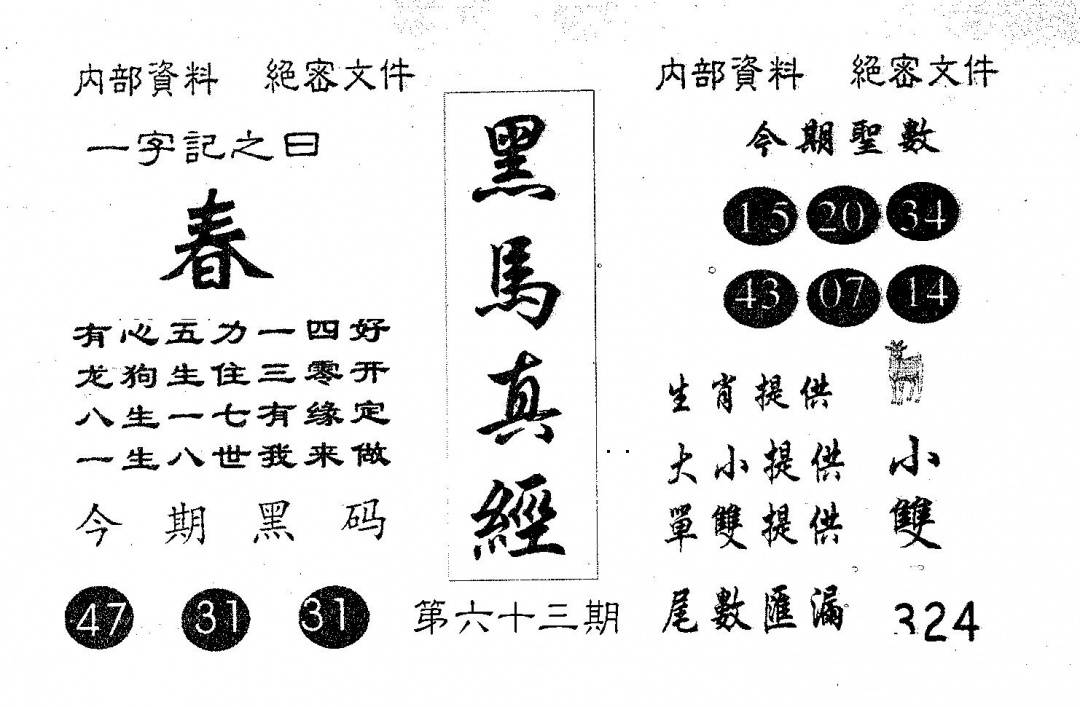 内部資料 絕密文件
一字記之曰
春
有心五力一四好
龙狗生住三零开
八生一七有缘定
一生八世我来做
今期黑码
47 31 31
黑馬真經
第六十三期
内部資料 絕密文件
今期聖數
15 20 34
43 07 14
生肖提供
大小提供 小
單雙提供 雙
尾數匯漏 324